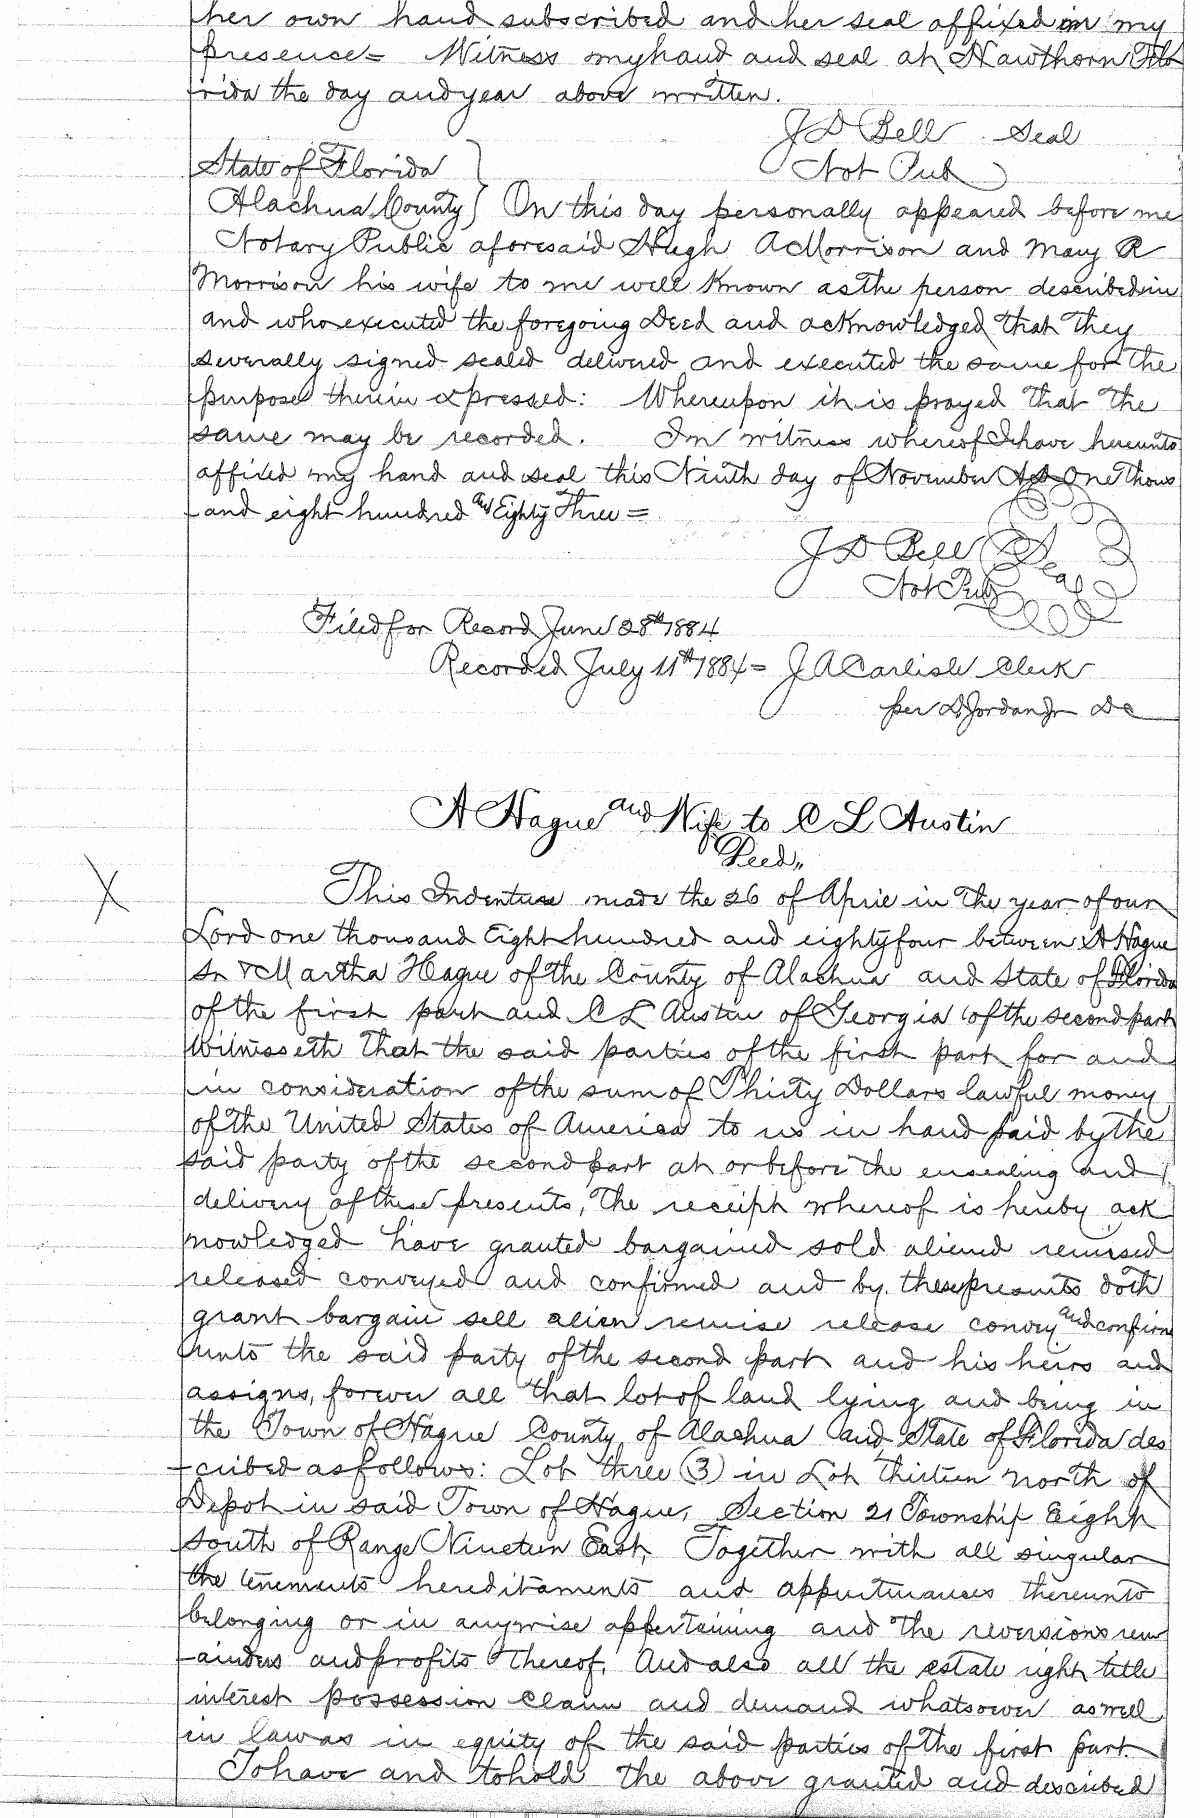 her own hand subscribed and her seal affixed in my
presence = Witness my hand and seal at Hawthorn Flo
rida the day and year above written.
J D Bell Seal
Not Pub
State of Florida }
Alachua County } On this day personally appeared before me
Notary Public aforesaid Hugh A Morrison and Mary R
Morrison his wife to me well Known as the person described in
and who executed the foregoing Deed and acknowledged that they
severally signed sealed delivered and executed the same for the
purpose therein expressed: Whereupon it is prayed that the
same may be recorded. In witness whereof I have hereunto
affixed my hand and seal this Ninth day of November AD One Thous
-and eight hundred and Eighty Three =
J D Bell Seal
Not Pub
Filed for Record June 28th 1884
Recorded July 11th 1884 = J A Carlisle Clerk
per D Jordan Jr DC
A Hague and Wife to C L Austin
Deed"
X This Indenture made the 26 of April in the year of our
Lord one thousand Eight hundred and eighty four between A Hague
Sr & Martha Hague of the County of Alachua and State of Florida
of the first part and C L Austin of Georgia of the second part
Witnesseth That the said parties of the first part for and
in consideration of the sum of Thirty Dollars lawful money
of the United States of America to us in hand paid by the
said party of the second part at or before the ensealing and
delivery of these presents, the receipt whereof is hereby ack
nowledged have granted bargained sold aliened remised
released conveyed and confirmed and by these presents doth
grant bargain sell alien remise release convey and confirm
unto the said party of the second part and his heirs and
assigns, forever all that lot of land lying and being in
the Town of Hague County of Alachua and State of Florida des
-cribed as follows: Lot three (3) in Lot thirteen north of
Depot in said Town of Hague, Section 21 Township Eight
south of Range Nineteen East, Together with all singular
the tenements hereditaments and appurtinances thereunto
belonging or in anywise appertaining and the reversions rem
-ainders and profits thereof. And also all the estate right title
interest possession claim and demand whatsoever as well
in law as in equity of the said parties of the first part
To have and to hold the above granted and described